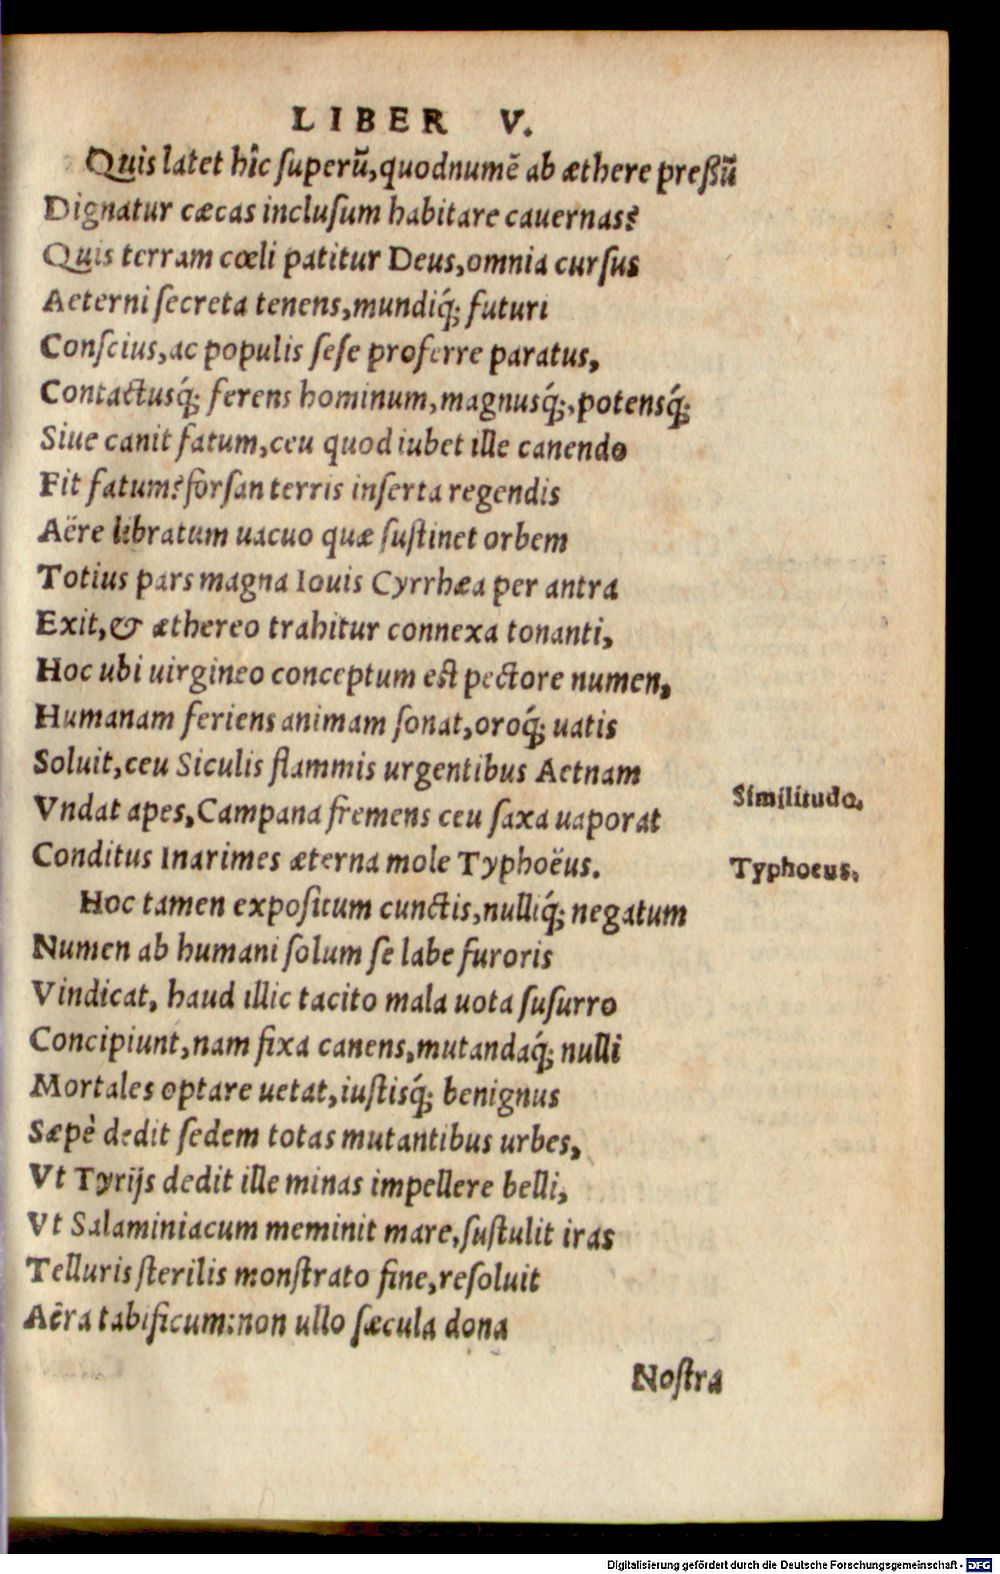 LIBER V.
Quis latet hîc ſuperũ, quodnumẽ ab æthere preſſũ
Dignatur cæcas incluſum habitare cauernas?
Quis terram cœli patitur Deus, omnia curſus
Aeterni ſecreta tenens, mundiq́; futuri
Conſcius, ac populis ſeſe proferre paratus,
Contactusq́; ferens hominum, magnusq́;, potensq́;
Siue canit fatum, ceu quod iubet ille canendo
Fit fatum? forſan terris inſerta regendis
Aëre libratum uacuo quæ ſuſtinet orbem
Totius pars magna Iouis Cyrrhæa per antra
Exit, & æthereo trahitur connexa tonanti,
Hoc ubi uirgineo conceptum eſt pectore numen,
Humanam feriens animam ſonat, oroq́; uatis
Soluit, ceu Siculis flammis urgentibus Aetnam
Vndat apes, Campana fremens ceu ſaxa uaporat
Similitudo.
Conditus Inarimes æterna mole Typhoëus.
Typhoeus.
Hoc tamen expoſitum cunctis, nulliq́; negatum
Numen ab humani ſolum ſe labe furoris
Vindicat, haud illic tacito mala uota ſuſurro
Concipiunt, nam fixa canens, mutandaq́; nulli
Mortales optare uetat, iuſtisq́; benignus
Sæpè dedit ſedem totas mutantibus urbes,
Vt Tyrijs dedit ille minas impellere belli,
Vt Salaminiacum meminit mare, ſuſtulit iras
Telluris ſterilis monſtrato fine, reſoluit
Aëra tabificum: non ullo ſæcula dona
Noſtra
Digitalisierung gefördert durch die Deutsche Forschungsgemeinschaft - DFG